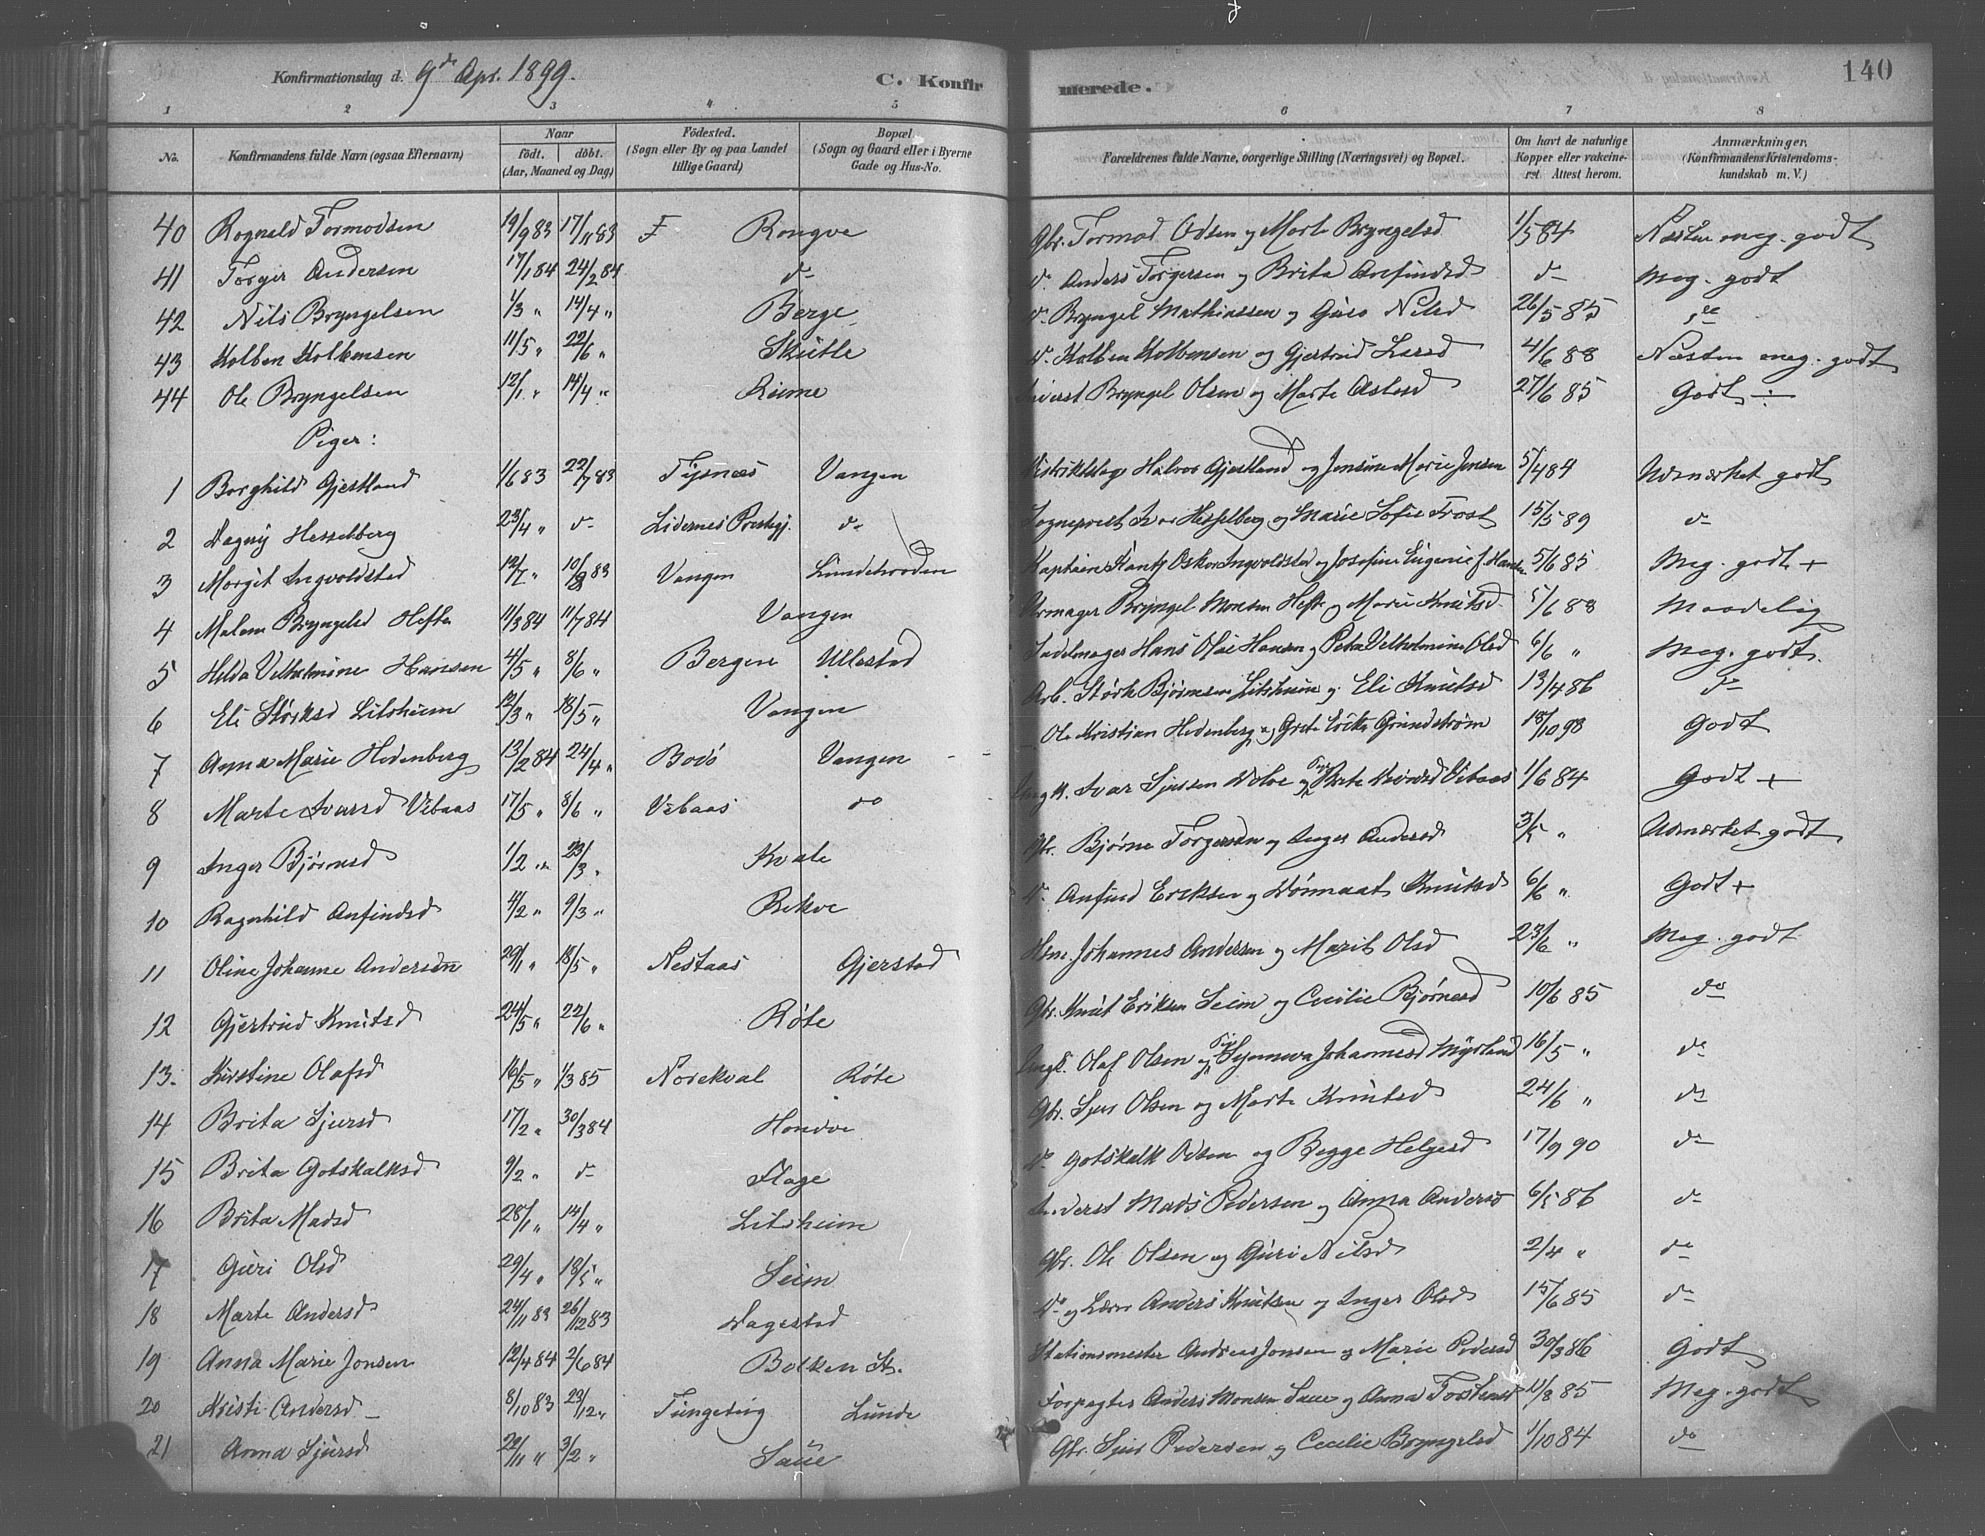 Konfirmationsdag d. 9de Apr. 1899. C. Konfirmerede. 140
1 2 3 4 5 6 7 8
No. Konfirmandens fulde Navn (ogsaa Efternavn) Naar født. døbt. (Aar, Maaned og Dag) Fødested. (Sogn eller By og paa Landet tillige Gaard) Bopæl (Sogn og Gaard eller i Byerne Gade og Hus-No. Forældrenes fulde Navne, borgerlige Stilling (Næringsvei) og Bopæl. Om havt de naturlige Kopper eller vakcineret Attest herom. Anmærkninger. (Konfirmandens Kristendomskundskab m. V.)
40 Rognald Tormodsen 19/9 83 17/11 83 F Rongve Gbr. Tormod Odsen og Marte Bryngelsd 1/5 84 Næsten meg. godt
41 Torger Andersen 17/1 84 24/2 84 do do Anders Torgersen og Brita Anfindsd do Meg. godt
42 Nils Bryngelsen 1/3 " 14/4 " Berge do Bryngel Mathiassen og Guro Nilsd 26/5 85 do
43 Kolben Kolbensen 11/5 " 22/6 " Skutle do Kolben Kolbensen og Gjertrud Larsd 4/6 88 Næsten meg. godt
44 Ole Bryngelsen 12/1 " 14/4 " Rieme Inderst Bryngel Olsen og Marte Aslesd 27/6 85 Godt ÷
Piger:
1 Borghild Gjestland 1/6 83 22/7 83 Tysnæs Vangen Distriktslæge Halvor Gjestland og Jensine Marie Jensen 5/4 84 Udmærket godt
2 Dagny Hesselberg 23/4 " do Lidernes Prestegj. do Sogneprest Hesselberg og Marie Sofie Frost 15/5 89 do
3 Margit Ingvoldstad 12/7 " 10/8 83 Vangen Lundehvoden Kaptein Oskar Ingvoldstad og Josefine Eugenie J. Hansen 5/6 85 Meg. godt +
4 Malene Bryngelsd Hefte 11/3 84 11/7 84 Vangen Urmager Bryngel Monsen Hefte og Marie Knutsd 5/6 88 Maadelig
5 Hilda Vilhelmine Hansen 4/5 " 8/6 " Bergen Ullestad Sadelmager Hans Olai Hansen og Petra Vilhelmine Olsd 6/6 " Meg. godt.
6 Eli Størksd Litsheim 12/3 " 18/5 " Vangen Arb. Størk Bjørnsen Litsheim og Eli Knutsd 13/4 86 do
7 Anna Marie Hedenberg 13/2 84 24/4 " Bodø Vangen Ole Kristian Hedenberg og Grete Erika Grundstrøm 18/10 98 Godt
8 Marte Ivarsd Vibaas 17/5 " 8/6 " Vibaas do Ungk. Ivar Sjursen og Pige Brita Vibaas 1/6 84 Godt +
9 Inger Bjørnsd 1/2 " 23/3 " Kvale Gbr. Bjørne Torgersen og Inger Andersd 3/5 " Udmærket godt
10 Ragnhild Anfindsd 4/2 " 9/3 " Rekve do Anfind Eriksen og Knutsd 6/6 " Godt +
11 Oline Johanne Andersen 29/1 " 18/5 " Nestaas Gjerstad Hsm. Johannes Andersen og Marit Olsd 23/6 " Meg. godt
12 Gjertrud Knutsd 24/5 " 22/6 " Røte Gbr. Knut Eriksen Seim og Cecilie Bjørnesd 10/6 85 do
13. Kirstine Olafsd 16/5 " 1/3 85 Norekval Røte Ungk. Olaf Olsen og Pige Synneva Johannesd Myrland 16/5 " do
14 Brita Sjursd 17/2 " 30/3 84 Hondve Gbr. Sjur Olsen og Marte Knutsd 24/6 " do
15 Brita Gotskalksd 9/2 " do Flage do Gotskalk Odsen og Begge Helgesd 17/9 90 do
16 Brita Madsd 28/1 " 14/4 " Litsheim Inderst Mads Pedersen og Anna Andersd 6/5 86 do
17 Guri Olsd 29/4 " 18/5 " Seim Gbr. Ole Olsen og Guri Nilsd 2/4 " do
18 Marte Andersd 24/11 83 26/12 83 Dagestad do og Lærer Anders Knutsen og Inger Olsd 15/6 85 do
19 Anna Marie Jonsen 12/4 84 2/6 84 Bolken St. Stationsmester Andreas Jonsen og Marie Pedersd 30/3 86 Godt
20 Kristi Andersd 8/10 83 23/12 " Tungeteig Lunde Forpagter Anders Monsen Saue og Anna Torstensd 11/8 85 Meg. godt
21 Anna Sjursd 22/11 " 3/2 " Saue Gbr. Sjur Pedersen og Cecilie Bryngelsd 1/10 84 do